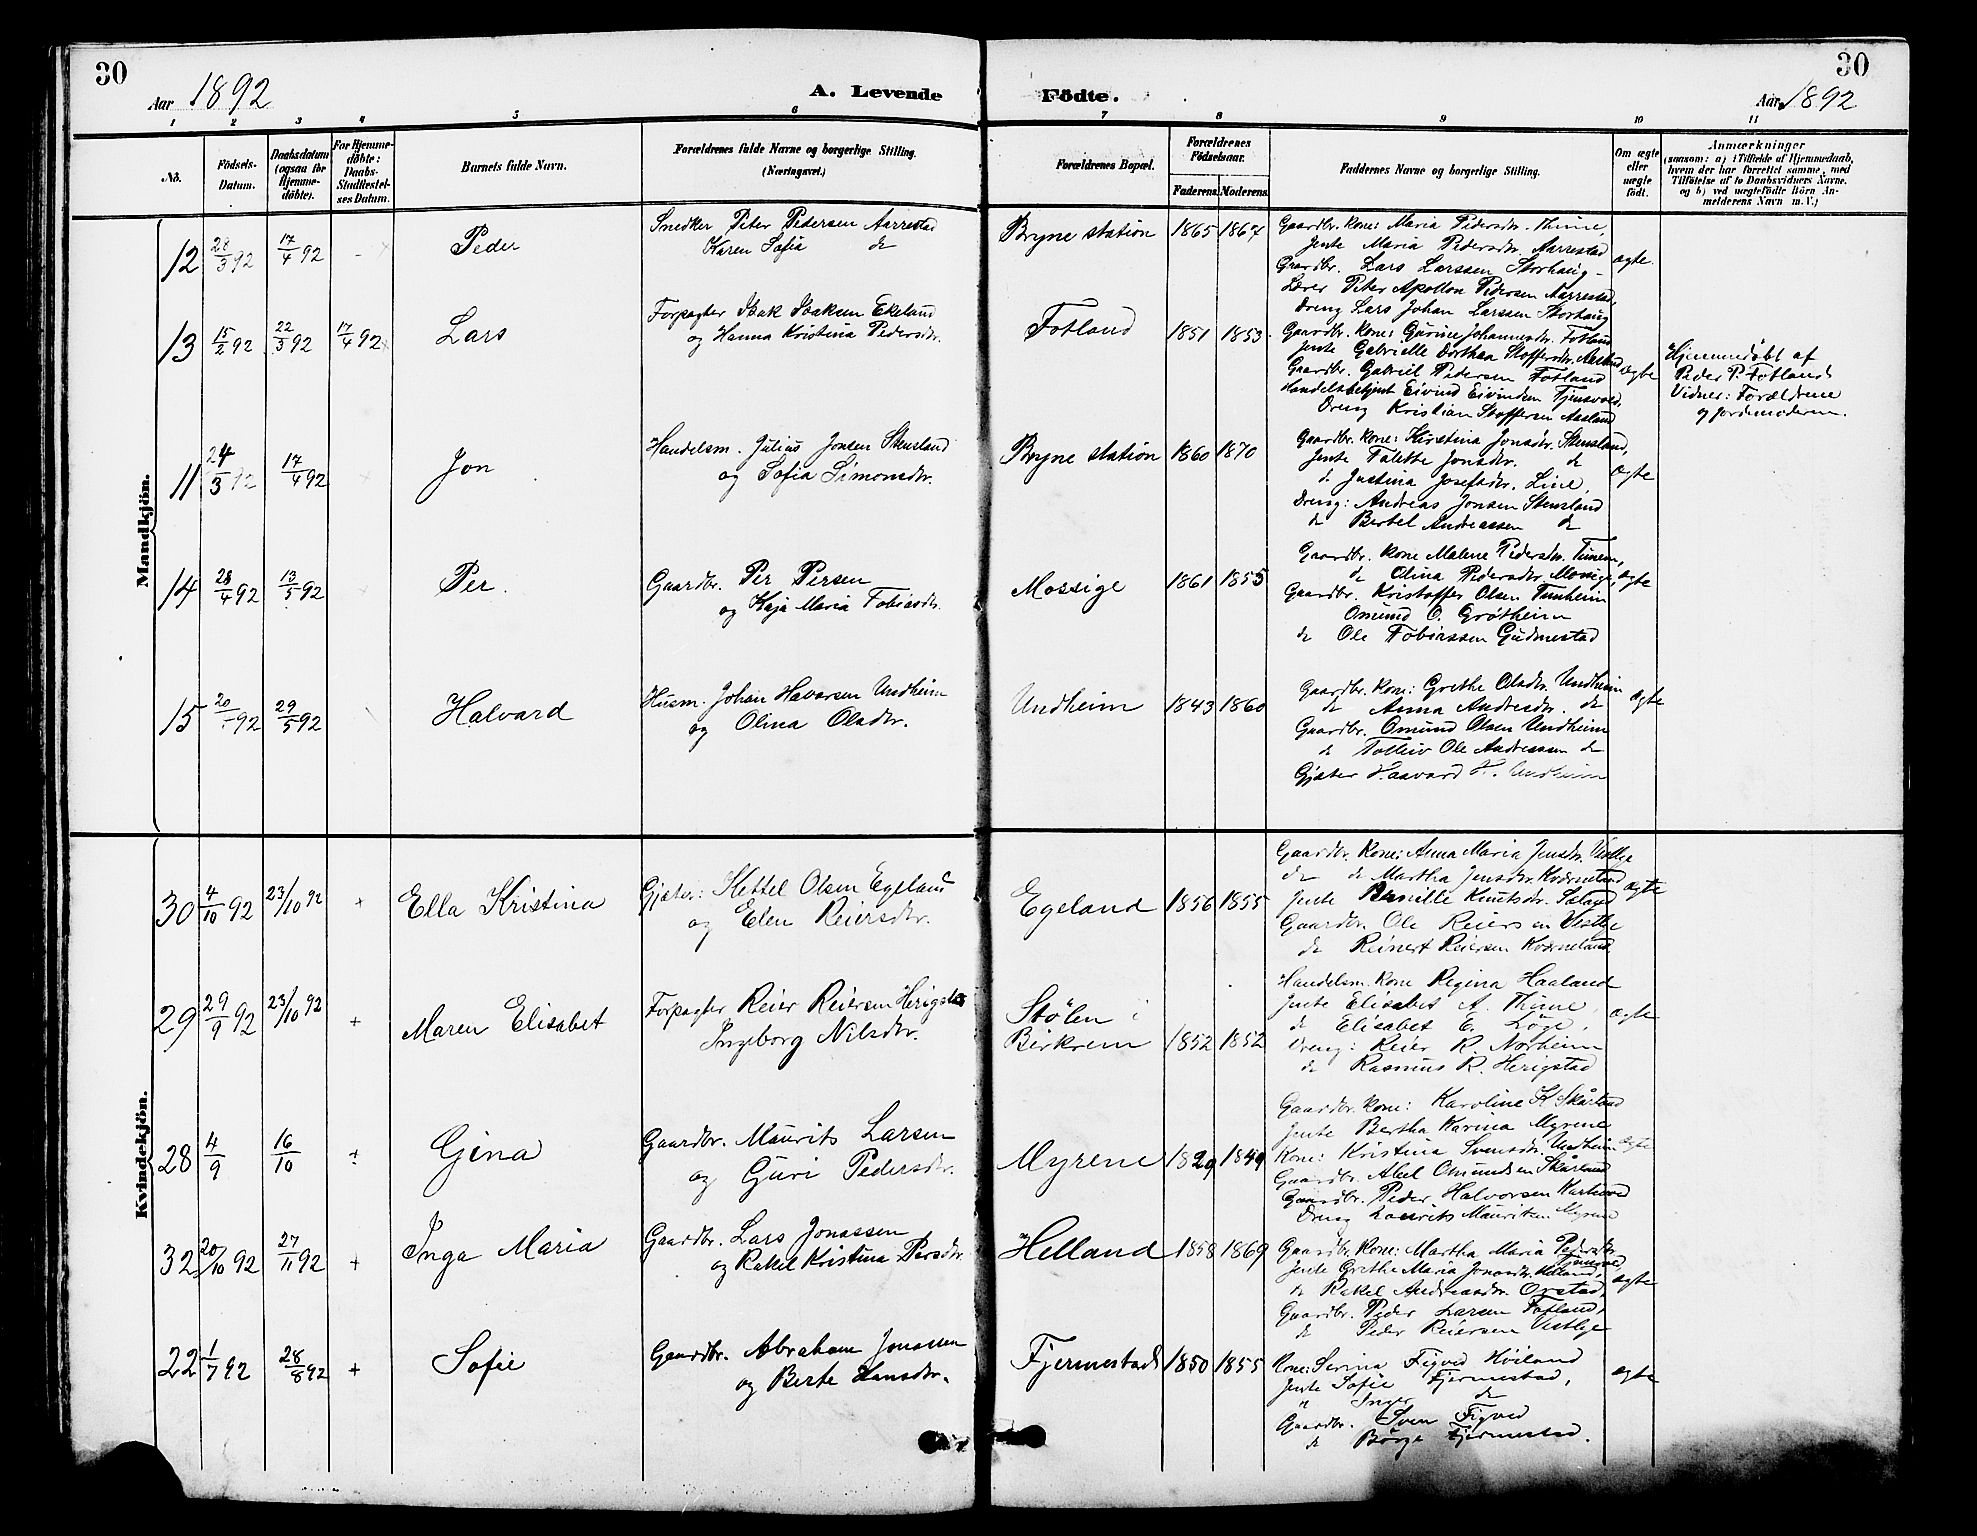 30
Aar 1892
A. Levende
Födte.
Aar 1892
30
1 2 3 4 5 6 7 8 9 10 11
No.
Födsels-Datum.
Daabsdatum (ogsaa for Hjemme-döbte).
For Hjemme-döbte: Daabs-Stadfæstel-ses Datum.
Barnets fulde Navn.
Forældrenes fulde Navne og borgerlige Stilling.
(Næringsvei.)
Forældrenes Bopæl.
Forældrenes Födselsaar.
Faderens. Moderens.
Faddernes Navne og borgerlige Stilling.
Om ægte eller uægte födt.
Anmærkninger
(saasom: a) i Tilfælde af Hjemmedaab, hvem der har forrettet samme, med Tilföielse af to Daabsvidners Navne, og b) ved uægtefödte Börn An-melderens Navn m. V.)
Mandkjön.
12 28/3 92 17/4 92 - Peder
Snedker Peter Pedersen Aarrestad
Karen Sofia do
Bryne station 1865 1864
Gaardbr. kone: Maria Pedersdr. Thime,
Jente Maria Pedersdr. Aarrestad
Gaardbr. Lars Larssen Storhaug -
Lærer Peter Apollon Pedersen Aarrestad,
Dreng Lars Johan Larssen Storhaug
ægte.
13 15/2 92 22/3 92 17/4 92 Lars
Forpagter Isak Isaksen Ekeland
og Hanna Kristina Pedersdr.
Fotland 1851 1853.
Gaardbr. kone: Gurine Johannesdr. Fotland
Jente Gabrielle Dorthea Stoffersdr. Aasland
Gaardbr. Gabriel Pedersen Fotland
Handelsbetjent Eivind Eivindsen Tjensvold,
Dreng Kristian Stoffersen Aasland
ægte
Hjemmedøbt af
Peder P. Fotland
Vidner: Forældrene
og jordmoderen.
11 24/3 92 17/4 92 Jon
Handelsm. Julius Jonsen Stensland
og Sofia Simonsdr.
Bryne station 1860 1870
Gaardbr. kone: Kristina Jonsdr. Stensland,
Jente Talette Jonsdr. do
d. Justina Josefsdr. Line,
Dreng: Andreas Jonsen Stensland
do Bertel Andreassen do
ægte
14 28/4 92 13/5 92 Per.
Gaardbr. Per Persen
og Kaja Maria Tobiasdr.
Mossige 1861 1855
Gaardbr. kone Malene Pedersdr. Tunem,
do Olina Pedersdr. Mossige,
Gaardbr. Kristoffer Olsen Tunheim
Omund O. Grøtheim
do Ole Tobiassen Gudmestad
ægte
15 20/ 92 29/5 92 Halvard
Husm. Johan Havorsen Undheim
og Olina Olsdtr.
Undheim 1843 1860
Gaardbr. kone: Grethe Olsdtr. Undheim
do Anna Andresdr. do
Gaardbr. Omund Olsen Undheim
do Tolleiv Ole Andreassen do
Gjæter Haavard H. Undheim
ægte
Kvindekjön.
30 4/10 92 23/10 92 + Ella Kristina
Gjæter: Kettel Olsen Egeland
og Elen Reiersdtr.
Egeland 1856 1855
Gaardbr. Kone: Anna Maria Jensdr. Vestlye
do do Martha Jensdr. Kværneland
Jente Bernille Knutsdr. Saland
Gaardbr. Ole Reiersen Vestlye
do Reinert Reiersen Kværneland
ægte
29 29/9 92 23/10 92 + Maren Elisabet
Forpagter Reier Reiersen Herigstad
Ingeborg Nilsdtr.
Stølen i
Birkrem 1852 1852
Handelsm. Kone Regina Haaland
Jente Elisabet A. Thime,
do Elisabet E. Løge,
Dreng: Reier R. Norheim
do Rasmus R. Herigstad
ægte
28 4/9 16/10 + Gina
Gaardbr. Maurits Larsen
og Guri Pedersdtr.
Myrene 1829 1849
Gaardbr. kone: Karoline K. Skårland
Jente Bertha Karina Myrene
Kone: Kristina Svensdr. Undheim
Gaardbr. Abel Omundsen Skårland
Gaardbr. Peder Halvorsen Karhoved
Dreng Laurits Mauritsen Myrene
ægte
32 20/10 92 27/11 92 + Inga Maria
Gaardbr. Lars Jonassen
og Rakel Kristina Persdtr.
Helland 1858 1869
Gaardbr. Kone: Martha Maria Pedersdtr.
Jente Grethe Maria Jonasdtr. Helland,
do Rakel Andreasdtr. Orstad,
Gaardbr. Peder Larsen Fotland,
do Peder Reiersen Vestlye
ægte
22 1/7 92 28/8 92 + Sofie
Gaardbr. Abraham Jonassen
og Berte Hansdtr.
Fjermestad 1850 1855
Kone: Serina Figved Høiland
Jente Sofie Fjermestad,
" Inger do
Gaardbr. Sven Figved
do Børge Fjermestad.
ægte